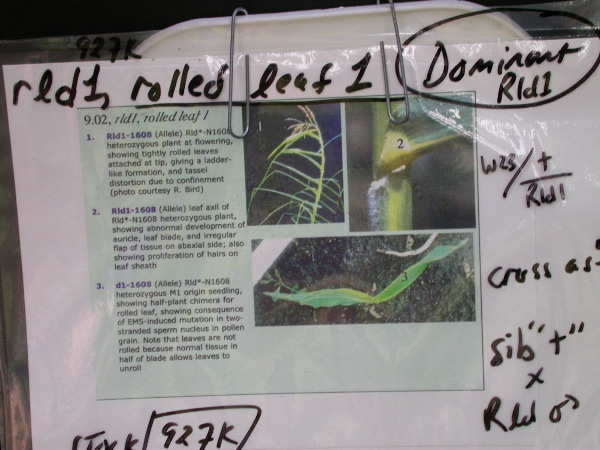 927K
rld1, rolled leaf 1
Dominant
Rld1
9.02, rld1, rolled leaf 1
1. Rld1-1608 (Allele) Rld*-N1608
heterozygous plant at flowering,
showing tightly rolled leaves
attached at tip, giving a ladder-
like formation, and tassel
distortion due to confinement
(photo courtesy R. Bird)
2. Rld1-1608 (Allele) leaf axil of
Rld*-N1608 heterozygous plant,
showing abnormal development of
auricle, leaf blade, and irregular
flap of tissue on abaxial side; also
showing proliferation of hairs on
leaf sheath
3. d1-1608 (Allele) Rld*-N1608
heterozygous M1 origin seedling,
showing half-plant chimera for
rolled leaf, showing consequence
of EMS-induced mutation in two-
stranded sperm nucleus in pollen
grain. Note that leaves are not
rolled because normal tissue in
half of blade allows leaves to
unroll
1
2
3
W23/+
Rld1
cross as
sib "+"
x
Rld ♂
927K